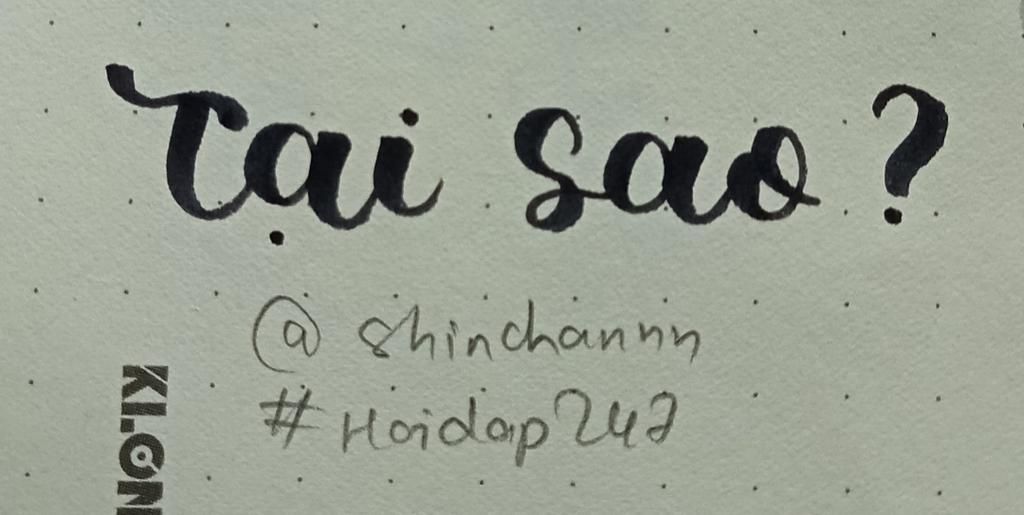 Tại sao?
@shinchannn
#Hoidap247
KLONG